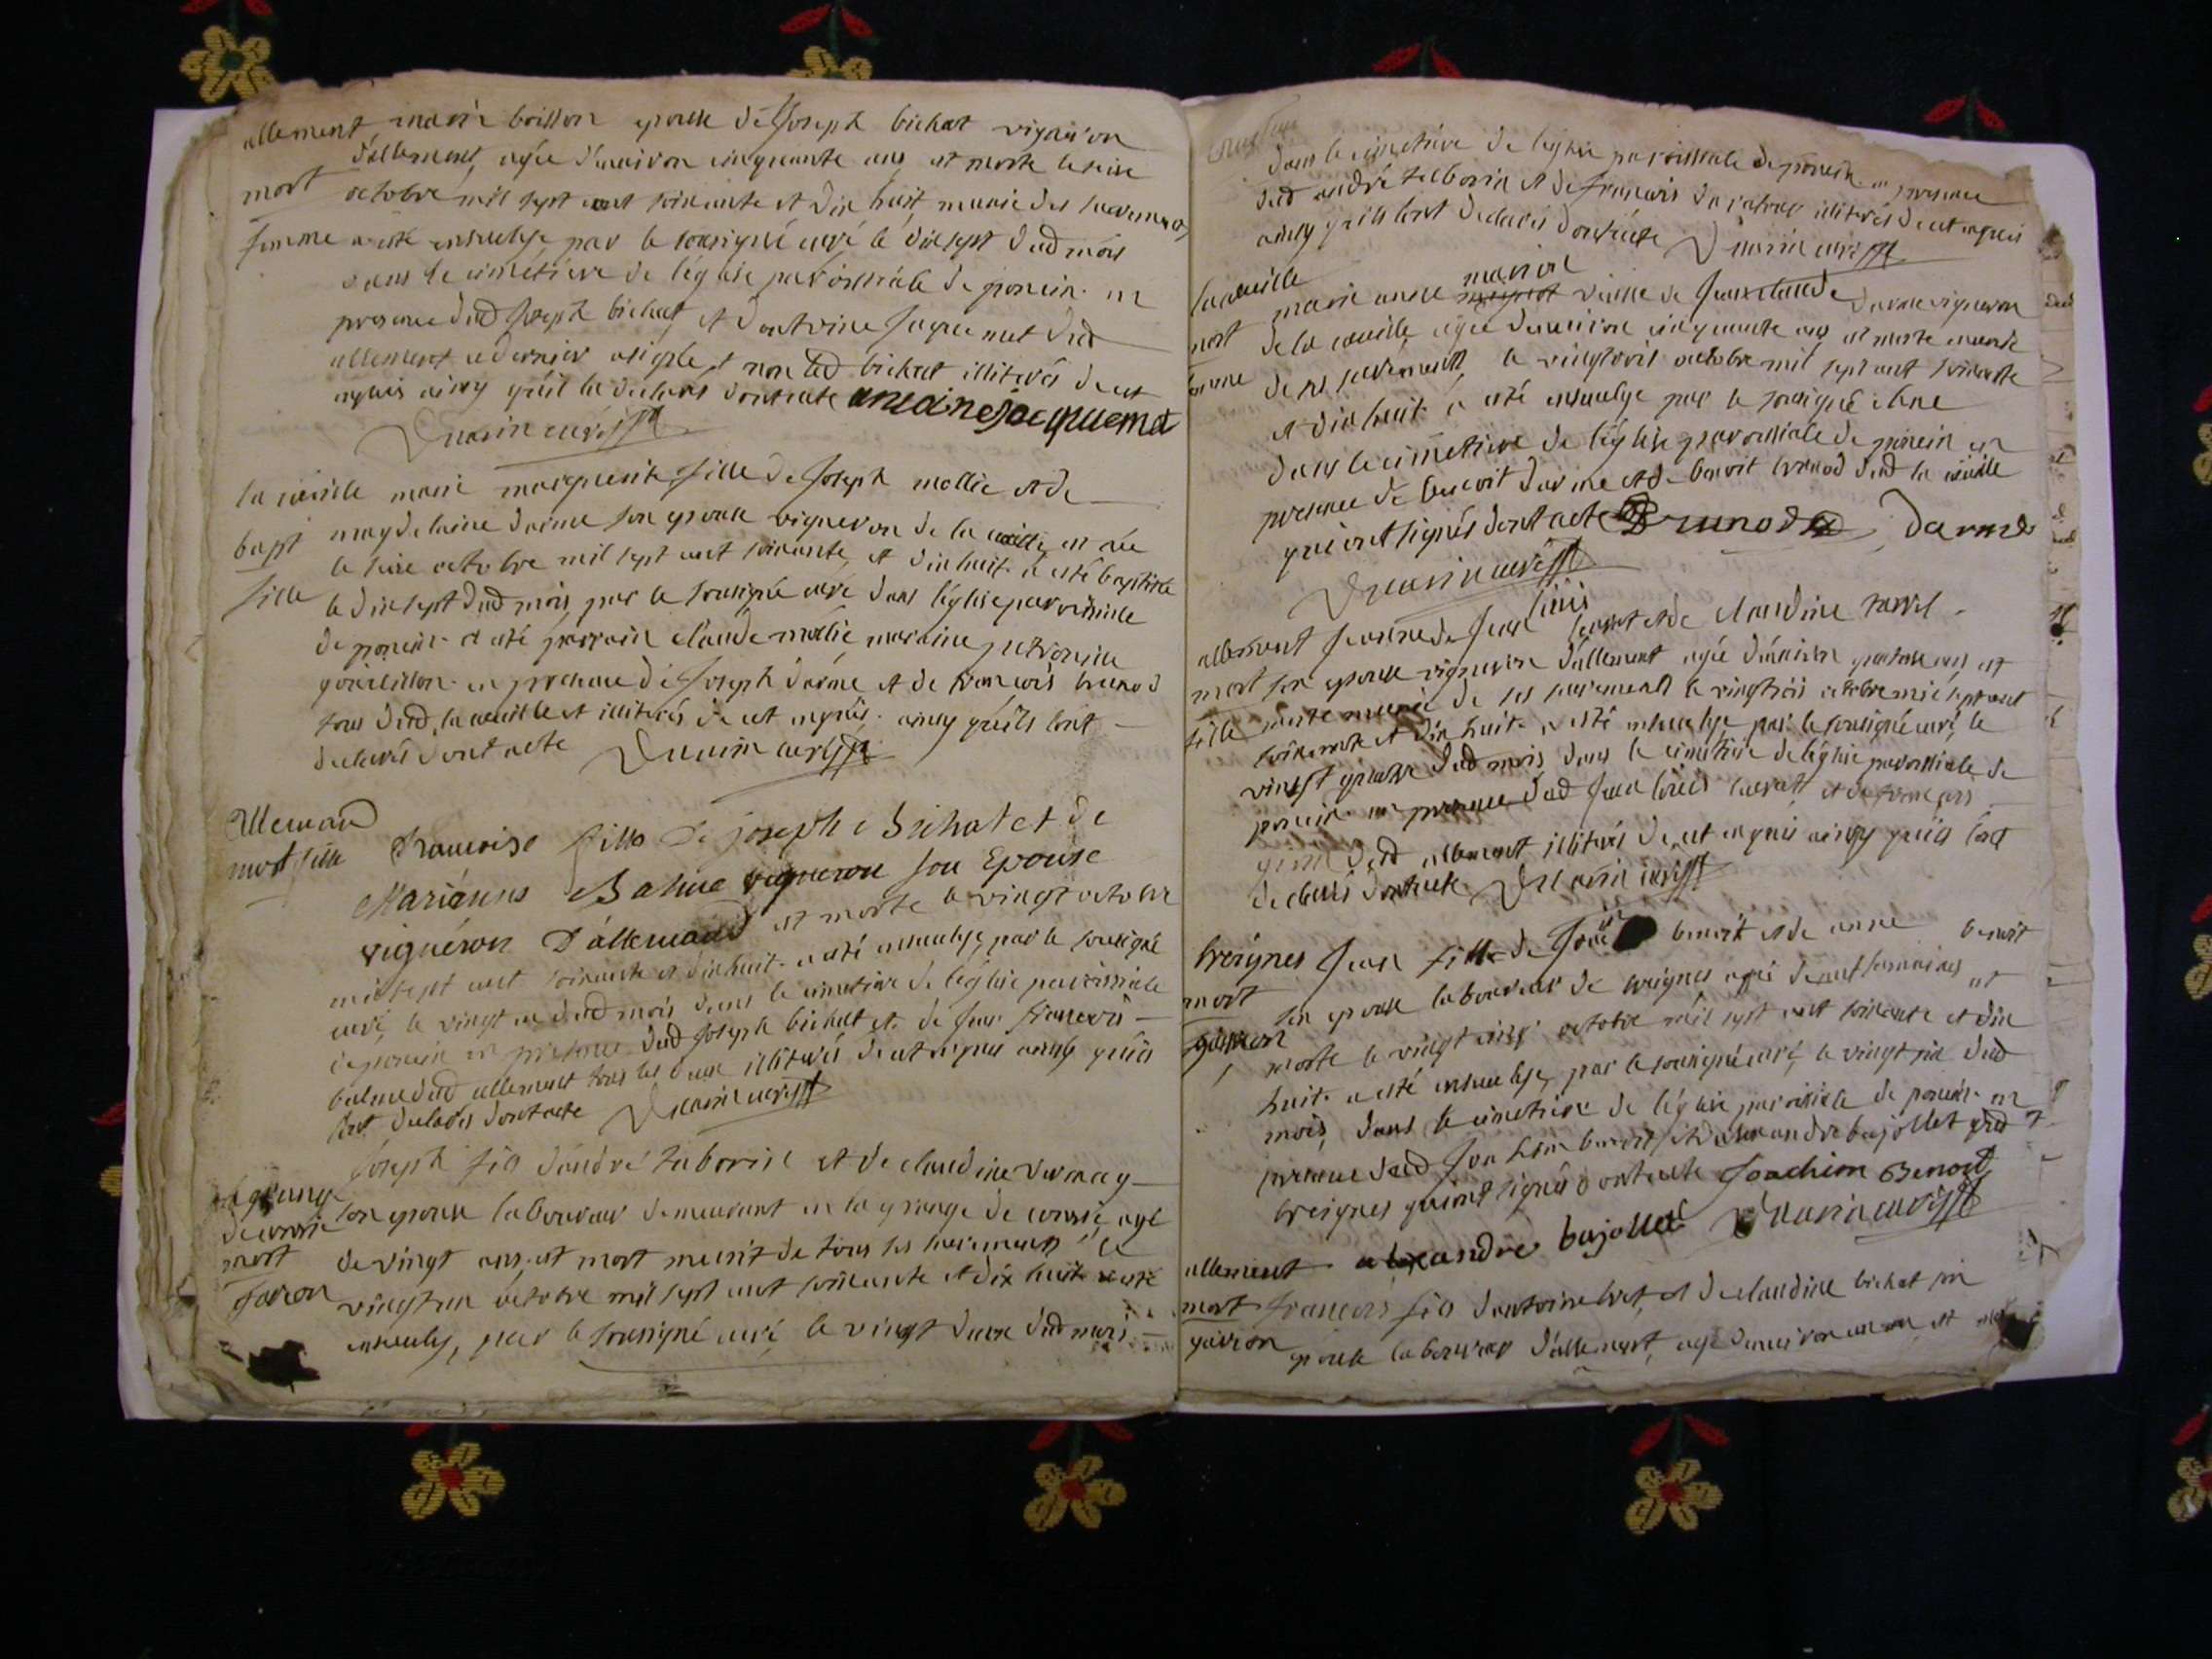 allement marie boisson epouse de Joseph bichat vigneron
d'allement, agée d'environ cinquante ans est morte le seize
mort octobre mil sept cent soixante et dix huit, munie des sacremens,
femme a esté ensevelye par le sousigné curé le dixsept dud mois
dans le cimetiere de léglise paroissiale de poncin en
presence dud Joseph bichat, et d'antoine Jaquemet dud
allement ce dernier a signé et non led bichat illiteré de ce
enquis ainsy qu'il la declaré dont acte antoine Jacquemet
curé
la cueille marie marguerite fille de Joseph mollie et de
bapt magdelaine darme son epouse vigneron de la cueille, est née
le seize octobre mil sept cent soixante, et dix huit a esté baptisée
fille le dixsept dud mois, par le sousigné curé dans léglise paroissiale
de poncin a esté parrain claude mollie maraine petronine
en presence de Joseph darme et de francois brunod
tous dud la cueille et illiterés de ce enquis ainsy qu'ils lont
declarés dont acte curé
Allemand
mort fille francoise fille de joseph Bichat et de
Marianne Balme vigneron son Epouse
vigneron D'allemand est morte le vingt octobre
mil sept cent soixante et dix huit a esté ensevelye, par le sousigné
curé, le vingt un dud mois dans le cimetiere de léglise paroissiale
de poncin en presence dud Joseph bichat et de francois
balme dud allement tous les deux illiterés de ce enquis ainsy qu'ils
lont declarés dont acte curé
Joseph fils d'andré taborin et de claudine
la grange son epouse laboureur demeurant en la grange de agé
mort de vingt ans, est mort munit de tous ses sacremens, le
garcon vingt un octobre mil sept cent soixante et dix huit a esté
ensevely, par le sousigné curé, le vingt deux dud mois
dans le cimetiere de léglise paroissiale de poncin en presence
dud andré taborin et de francois illiterés de ce enquis
ainsy qu'ils lont declarés dont acte curé
la cueille marion
marie anne veuve de Jean claude darme vigneron
mort de la cueille, agée d'environ cinquante ans est morte munie
femme de ses sacremens, le vingt trois octobre mil sept cent soixante
et dix huit a esté ensevelye par le sousigné
dans le cimetiere de léglise paroissiale de poncin en
presence de benoit darme et de benoit brunod dud la cueille
qui ont signés dont acte Brunod Darme
curé
louis
allement Jeanne de Jean et de claudine
mort son epouse vigneron d'allement agée d'environ quatorze ans est
fille morte munie de ses sacremens le vingt trois octobre mil sept cent
soixante et dix huit a esté ensevelye par le sousigné curé, le
vingt quatre dud mois dans le cimetiere de léglise paroissiale de
poncin en presence dud Jean louis et de francois
dud allement illiterés de ce enquis ainsy qu'ils lont
declarés dont acte curé
breignes Jean fille de benoit et de anne benoit
mort son epouse laboureur de breignes agé de semaines est
garcon morte le vingt cinq octobre mil sept cent soixante et dix
huit a esté ensevelye, par le sousigné curé, le vingt six dud
mois, dans le cimetiere de léglise paroissiale de poncin en
presence dud Joachim benoit, et d'alexandre bajollet dud
breignes qui ont signés dont acte Joachim Benoit
alexandre bajollet curé
allement
mort francois fils d'antoine et de claudine bichat son
garcon epouse laboureur d'allement, agé d'environ un an, est mort